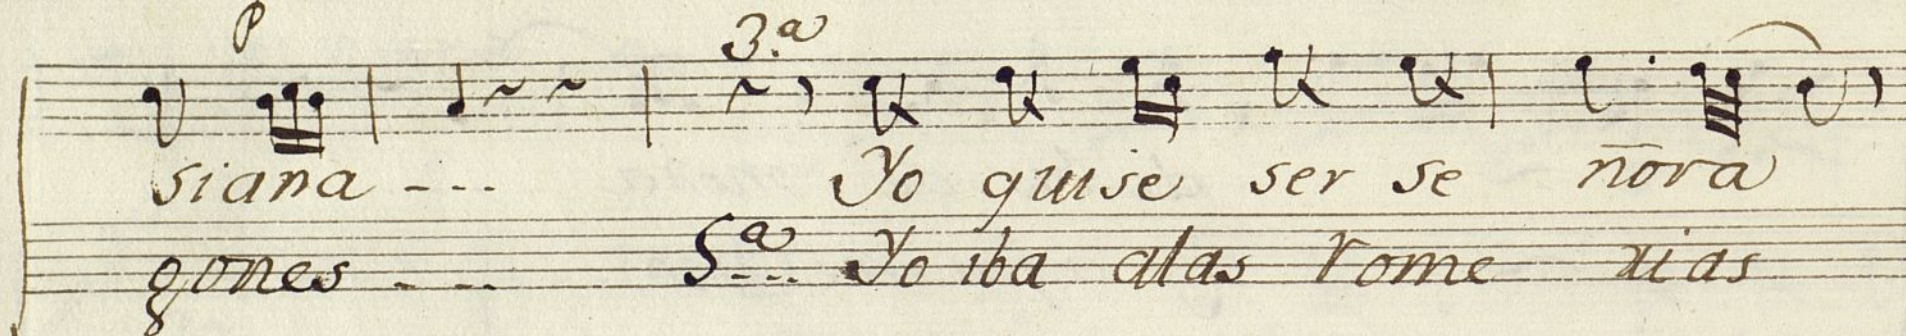 P 3.a
siana --- Yo quise ser se ñora
gones --- 5a --- Yo iba alas Rome rias